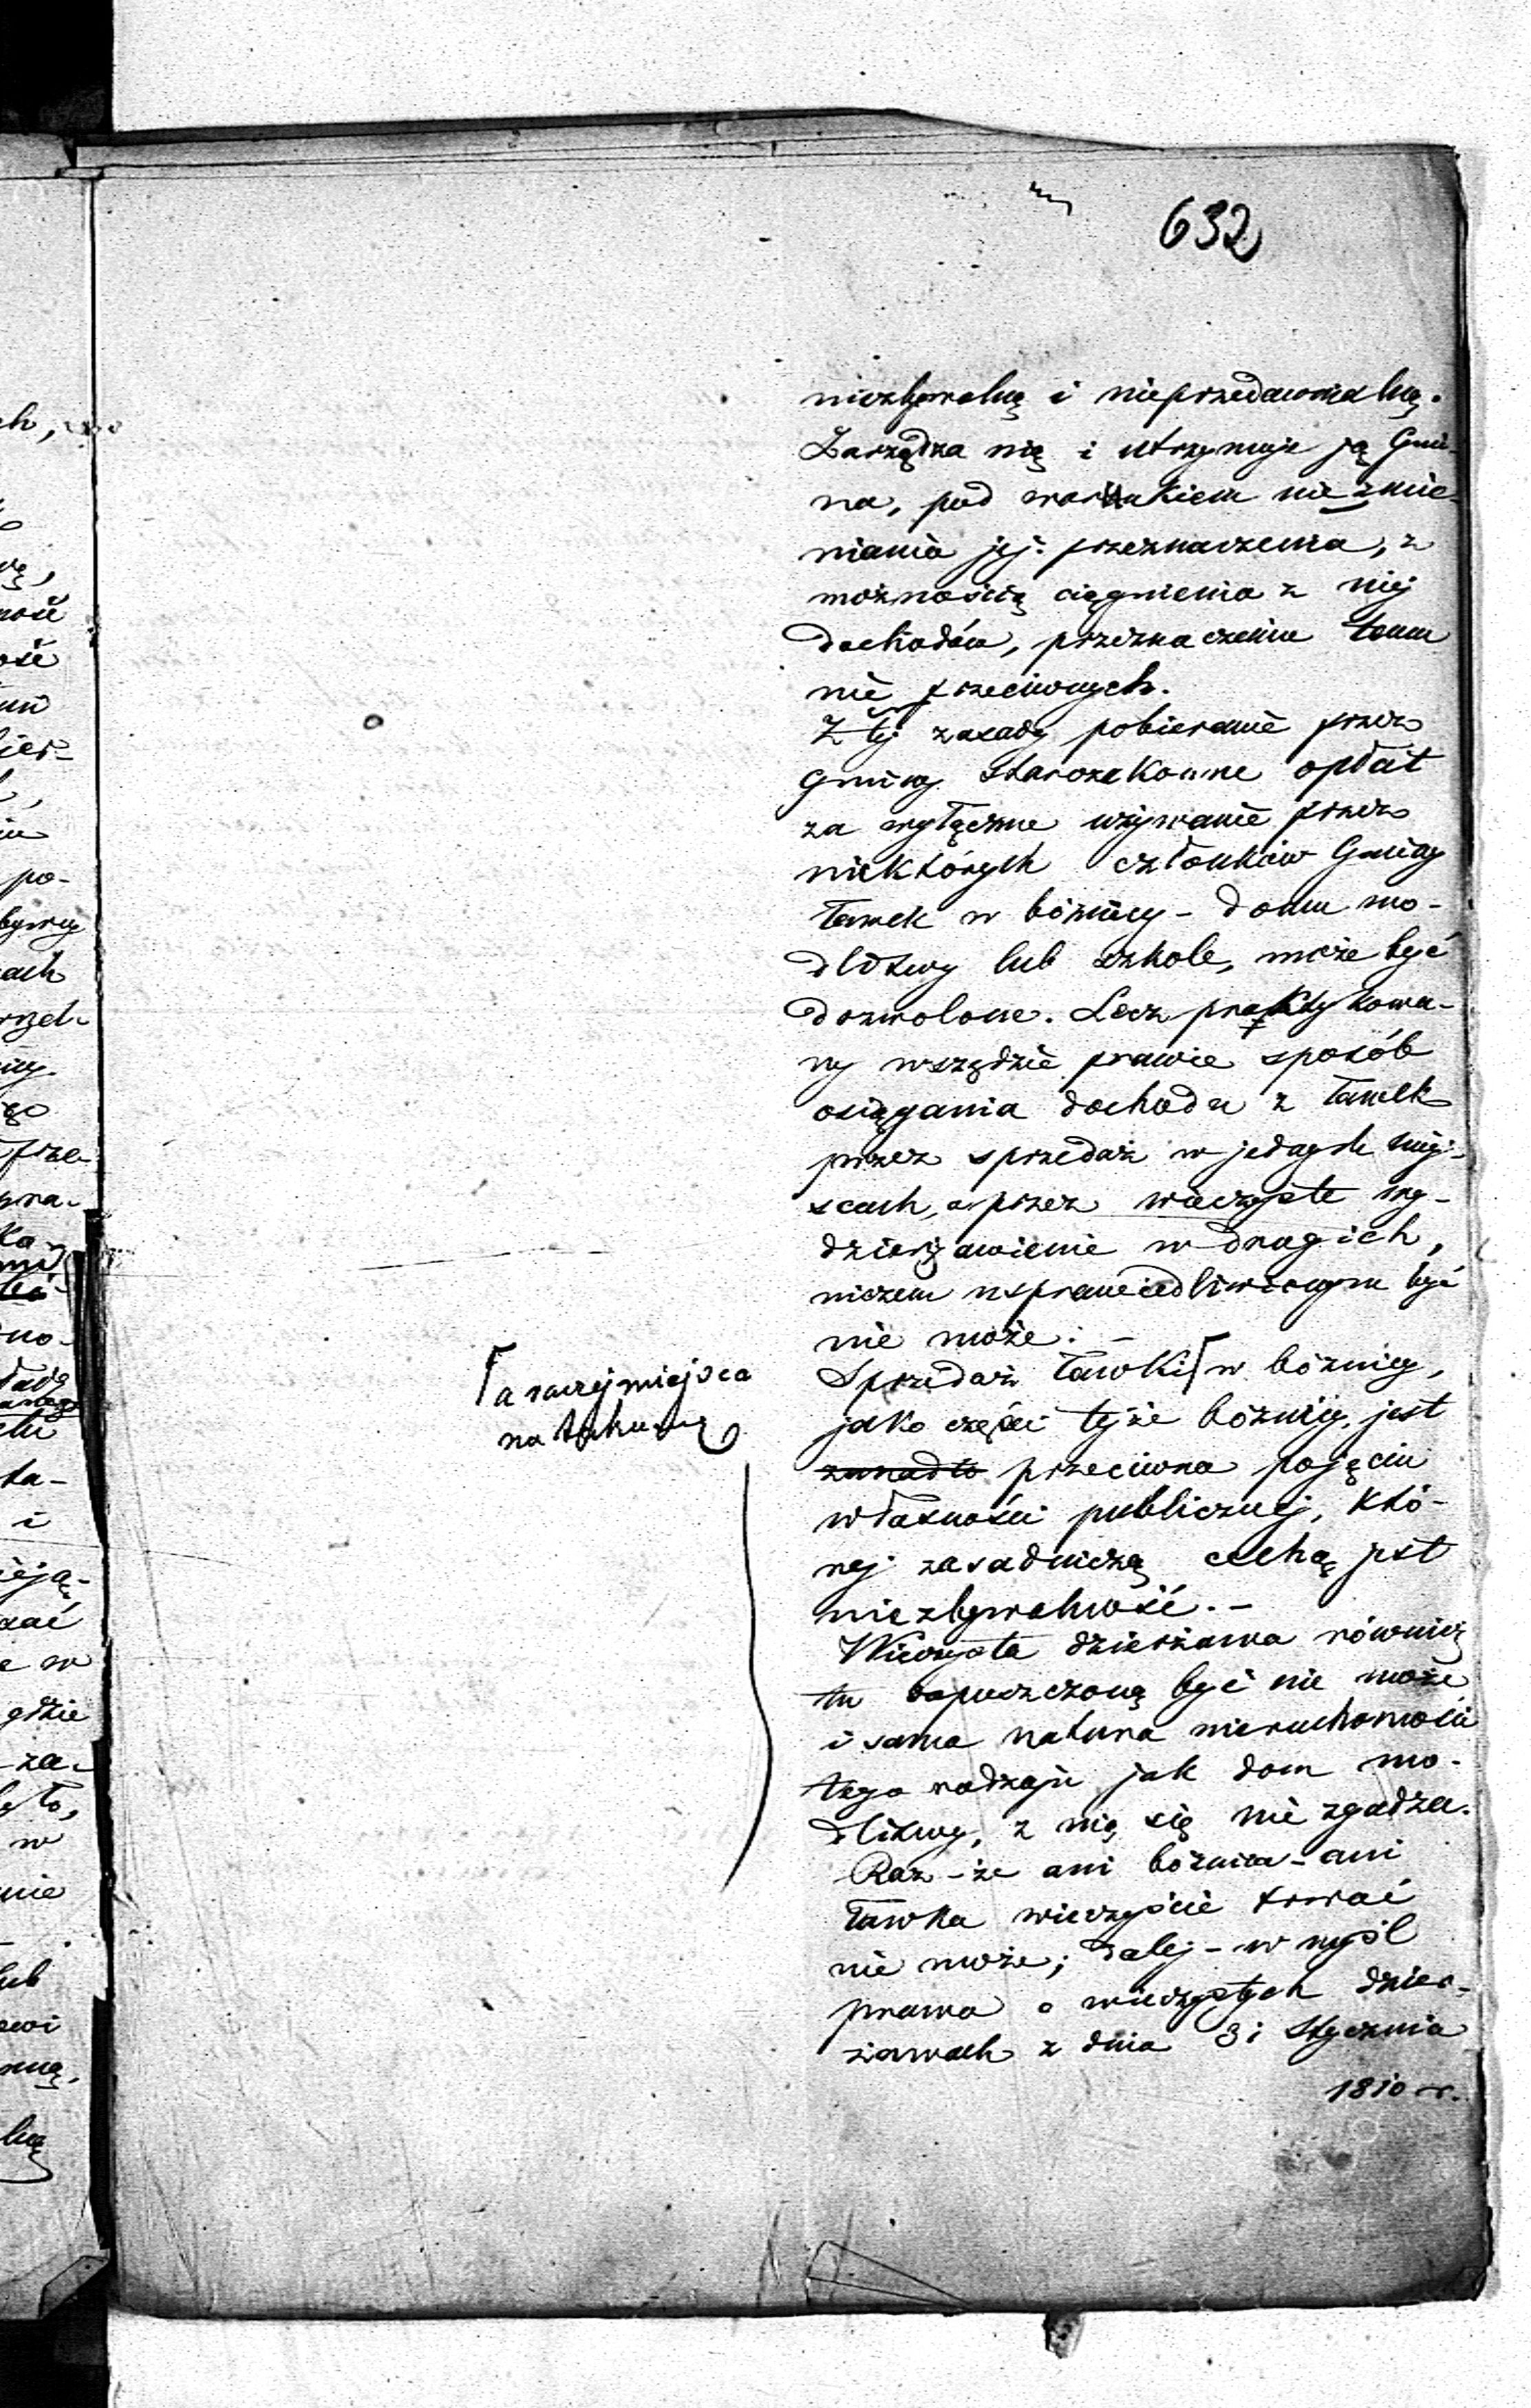 632
niezbywalną i nieprzedawnialną.
Zarządza nią i utrzymuje ją Gmi-
na, pod warunkiem nie zmie-
niania jéj przeznaczenia, z
możnością ciągnienia z niej
dochodów, przeznaczeniu temu
nie przeciwnych.
Z téj zasady pobieranie przez
Gminy starozakonne opłat
za wyłączne używanie przez
niektórych członków Gminy
ławek w bóżnicy - domu mo-
dlitwy lub szkole, może być
dozwolone. Lecz praktykowa-
ny wszędzie prawie sposób
osiągania dochodu z ławek
przez sprzedaż w jednych miej-
scach, a przez wieczyste wy-
dzierżawienie w drugich,
niczem usprawiedliwionym być
nie może. -
Sprzedaż ławki w bóżnicy,
a raczej miejsca
na
jako części tejże bóżnicy, jest
zanadto przeciwna pojęciu
własności publicznej, któ-
rej zasadniczą cechą jest
niezbywalność. -
Wieczysta dzierżawa również
tu dopuszczoną być nie może
i sama natura nieruchomości
tego rodzaju jak dom mo-
dlitwy, z nią się nie zgadza.
Raz - że ani bóżnica - ani
ławka wieczyście trwać
nie może; dalej - w myśl
prawa o wieczystych dzier-
żawach z dnia 31 Stycznia
1810 r.